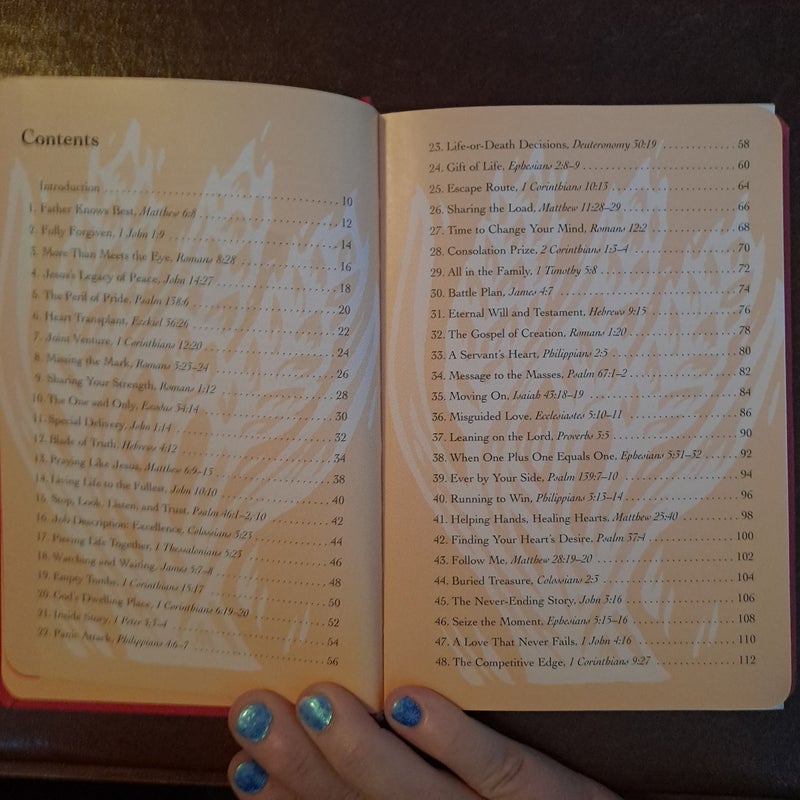 Contents
Introduction .......... 10
1. Father Knows Best, Matthew 6:8 .......... 12
2. Fully Forgiven, 1 John 1:9 .......... 14
3. More Than Meets the Eye, Romans 8:28 .......... 16
4. Jesus's Legacy of Peace, John 14:27 .......... 18
5. The Peril of Pride, Psalm 138:6 .......... 20
6. Heart Transplant, Ezekiel 36:26 .......... 22
7. Joint Venture, 1 Corinthians 12:20 .......... 24
8. Missing the Mark, Romans 3:23–24 .......... 26
9. Sharing Your Strength, Romans 1:12 .......... 28
10. The One and Only, Exodus 34:14 .......... 30
11. Special Delivery, John 1:14 .......... 32
12. Blade of Truth, Hebrews 4:12 .......... 34
13. Praying Like Jesus, Matthew 6:9–13 .......... 38
14. Living Life to the Fullest, John 10:10 .......... 40
15. Stop, Look, Listen, and Trust, Psalm 46:1–2, 10 .......... 42
16. Job Description: Excellence, Colossians 3:23 .......... 44
17. Piecing Life Together, 1 Thessalonians 5:23 .......... 46
18. Watching and Waiting, James 5:7–8 .......... 48
19. Empty Tombs, 1 Corinthians 15:17 .......... 50
20. God's Dwelling Place, 1 Corinthians 6:19–20 .......... 52
21. Inside Story, 1 Peter 3:3–4 .......... 54
22. Panic Attack, Philippians 4:6–7 .......... 56
23. Life-or-Death Decisions, Deuteronomy 30:19 .......... 58
24. Gift of Life, Ephesians 2:8–9 .......... 60
25. Escape Route, 1 Corinthians 10:13 .......... 64
26. Sharing the Load, Matthew 11:28–29 .......... 66
27. Time to Change Your Mind, Romans 12:2 .......... 68
28. Consolation Prize, 2 Corinthians 1:3–4 .......... 70
29. All in the Family, 1 Timothy 5:8 .......... 72
30. Battle Plan, James 4:7 .......... 74
31. Eternal Will and Testament, Hebrews 9:15 .......... 76
32. The Gospel of Creation, Romans 1:20 .......... 78
33. A Servant's Heart, Philippians 2:5 .......... 80
34. Message to the Masses, Psalm 67:1–2 .......... 82
35. Moving On, Isaiah 43:18–19 .......... 84
36. Misguided Love, Ecclesiastes 5:10–11 .......... 86
37. Leaning on the Lord, Proverbs 3:5 .......... 90
38. When One Plus One Equals One, Ephesians 5:31–32 .......... 92
39. Ever by Your Side, Psalm 139:7–10 .......... 94
40. Running to Win, Philippians 3:13–14 .......... 96
41. Helping Hands, Healing Hearts, Matthew 25:40 .......... 98
42. Finding Your Heart's Desire, Psalm 37:4 .......... 100
43. Follow Me, Matthew 28:19–20 .......... 102
44. Buried Treasure, Colossians 2:3 .......... 104
45. The Never-Ending Story, John 3:16 .......... 106
46. Seize the Moment, Ephesians 5:15–16 .......... 108
47. A Love That Never Fails, 1 John 4:16 .......... 110
48. The Competitive Edge, 1 Corinthians 9:27 .......... 112